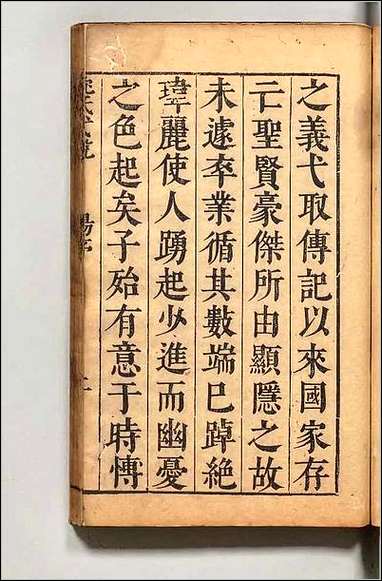 之義弋取傳記以來國家存
亡聖賢豪傑所由顯隱之故
未遽卒業循其數端已踔絕
瑋麗使人踴起少進而幽憂
之色起矣子殆有意于時慱